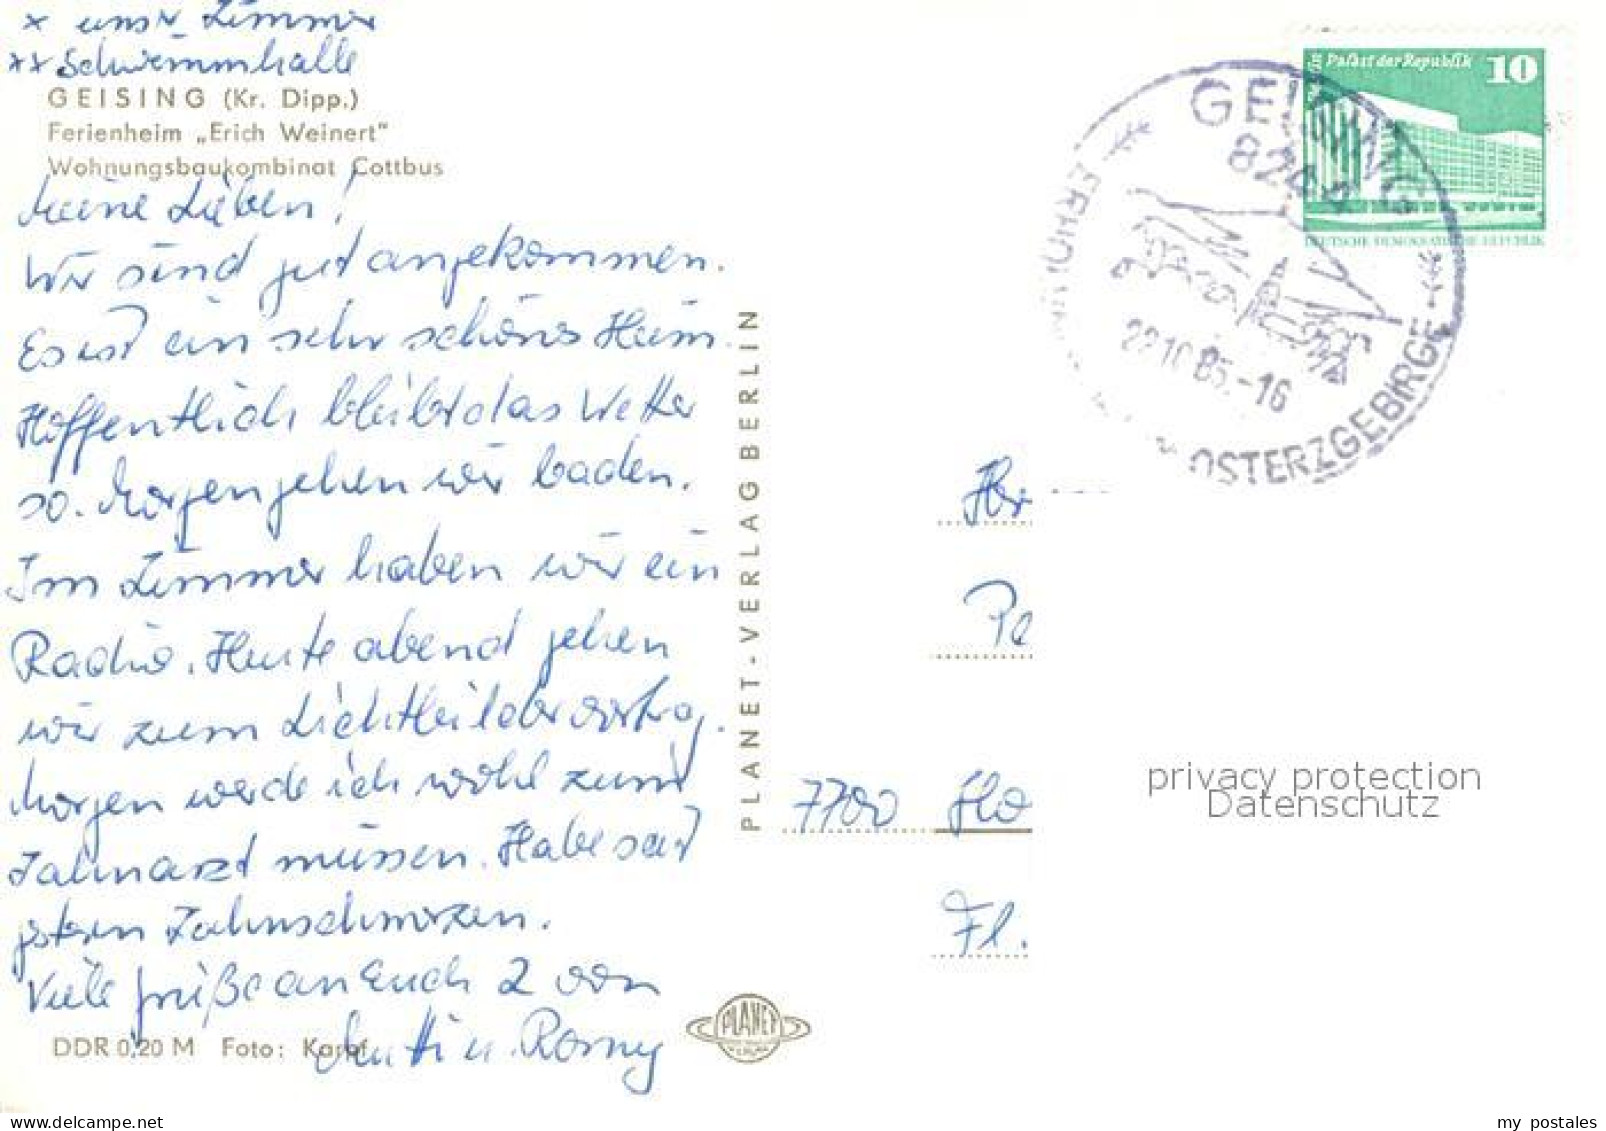 x unser Zimmer
xx Schwimmhalle
GEISING (Kr. Dipp.)
Ferienheim „Erich Weinert"
Wohnungsbaukombinat Cottbus
Meine Lieben!
Wir sind gut angekommen.
Es ist ein sehr schönes Heim.
Hoffentlich bleibt das Wetter
so. Morgen gehen wir baden.
Im Zimmer haben wir ein
Radio. Heute abend gehen
wir zum Lichtbildervortrag.
Morgen werde ich wohl zum
Zahnarzt müssen. Habe seit
gestern Zahnschmerzen.
Viele Grüße an Euch 2 von
Mutti u. Romy
DDR 0,20 M Foto: Karpf
PLANET-VERLAG BERLIN
PLANET
VERLAG
Palast der Republik 10
DEUTSCHE DEMOKRATISCHE REPUBLIK
GEISING
8244
22.10.85.-16
OSTERZGEBIRGE
7700 Ho
Fl.
privacy protection
Datenschutz
my_postales